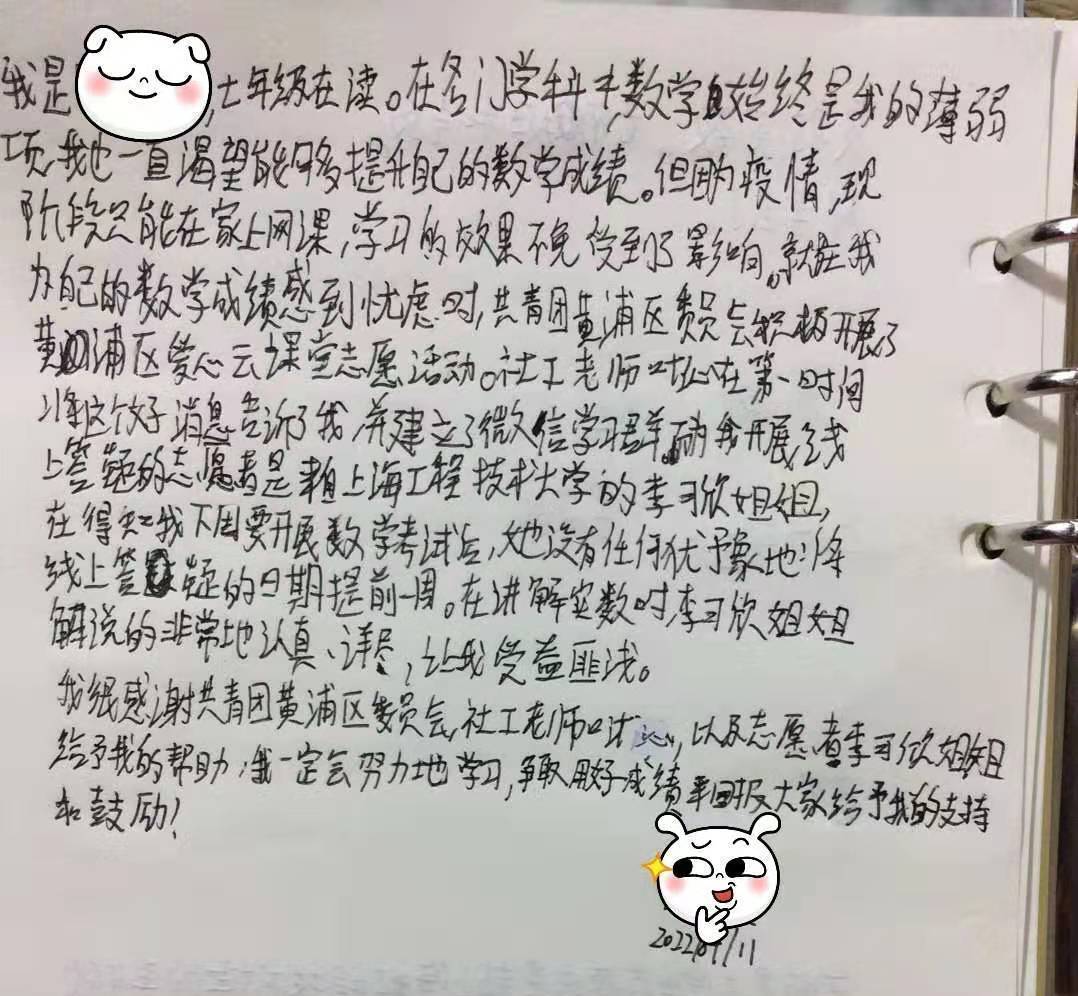 我是,七年级在读。在各门学科中,数学始终是我的薄弱
项,我也一直渴望能够提升自己的数学成绩。但因为疫情,现
阶段只能在家上网课,学习的效果不免受到了影响。就在我
为自己的数学成绩感到忧虑时,共青团黄浦区委员会积极开展了
黄浦区爱心云课堂志愿活动。社工老师叶沁在第一时间
将这个好消息告诉了我,并建立了微信学习群。而为我开展线
上答疑的志愿者是来自上海工程技术大学的李可欣姐姐,
在得知我下周要开展数学考试后,她没有任何犹予象地将
线上答疑的日期提前一周。在讲解实数时,李可欣姐姐
解说的非常地认真、详尽,让我受益匪浅。
我很感谢共青团黄浦区委员会,社工老师叶沁,以及志愿者李可欣姐姐
给予我的帮助,我一定会努力地学习,争取用好成绩来回报大家给予我的支持
和鼓励!
2022/ /11